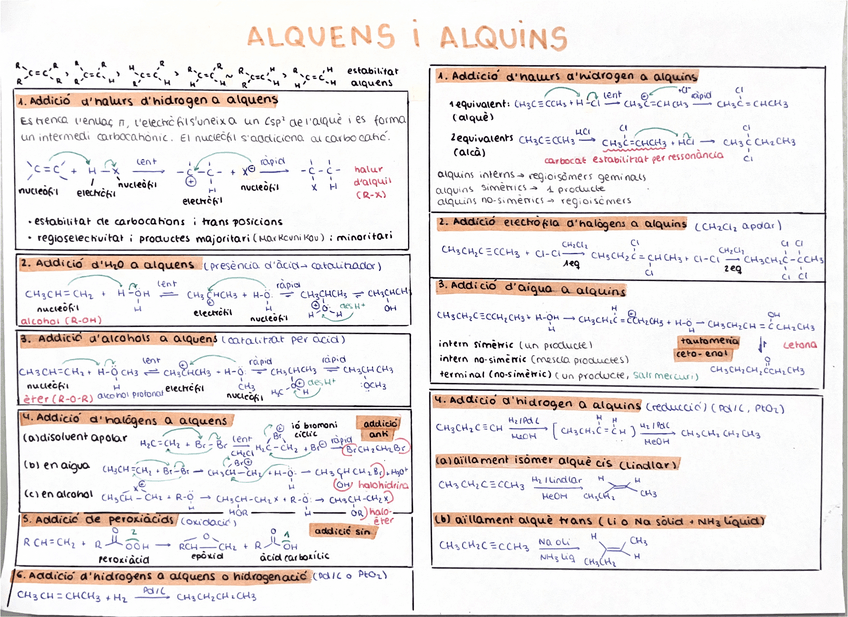 ALQUENS i ALQUINS
estabilitat
alquens
1. Addició d'halurs d'hidrogen a alquens
Es trenca l'enllaç π, l'electròfil s'uneix a un Csp² de l'alquè i es forma
un intermedi carbocatiònic. El nucleòfil s'addiciona al carbocatió.
C=C + H-X lent → -C-C- + X⊖ ràpid → -C-C-
X H
halur
d'alquil
(R-X)
nucleòfil electròfil nucleòfil electròfil nucleòfil
• estabilitat de carbocations i transposicions
• regioselectivitat i productes majoritari (Markovnikov) i minoritari
2. Addició d'H₂O a alquens (presència d'àcid → catalitzador)
CH₃CH=CH₂ + H-OH lent ⇌ CH₃CHCH₃ + H-O ràpid ⇌ CH₃CHCH₃ ⇌ CH₃CHCH₃
OH
nucleòfil electròfil nucleòfil
alcohol (R-OH)
3. Addició d'alcohols a alquens (catalitzat per àcid)
CH₃CH=CH₂ + H-OCH₃ lent → CH₃CHCH₃ + H-O ràpid → CH₃CHCH₃ ràpid → CH₃CHCH₃
H CH₃ :OCH₃
nucleòfil alcohol protonat electròfil nucleòfil
èter (R-O-R)
4. Addició d'halògens a alquens
addició
anti
(a) disolvent apolar
H₂C=CH₂ + Br-Br lent → CH₂Cl₂ H₂C-CH₂ + Br⊖ ràpid → BrCH₂CH₂Br
ió bromoni
cíclic
(b) en aigua
CH₃CH=CH₂ + Br-Br → CH₃CH-CH₂ + H-O → CH₃CHCH₂Br + H₃O⁺
OH halohidrina
(c) en alcohol
CH₃CH-CH₂ + R-OH → CH₃CH-CH₂X + R-O → CH₃CH-CH₂X
HOR OR halo-
èter
5. Addició de peroxiàcids (oxidació)
addició sin
RCH=CH₂ + R OOH → RCH-CH₂ + R OH
peroxiàcid epòxid àcid carboxílic
6. Addició d'hidrògens a alquens o hidrogenació (Pd/C o PtO₂)
CH₃CH=CHCH₃ + H₂ Pd/C → CH₃CH₂CH₂CH₃
1. Addició d'halurs d'hidrogen a alquins
1 equivalent: CH₃C≡CCH₃ + H-Cl lent → CH₃C=CHCH₃ ràpid → CH₃C=CHCH₃
(alquè)
2 equivalents CH₃C≡CCH₃ HCl → CH₃C=CHCH₃ + HCl → CH₃CCH₂CH₃
(alcà)
carbocat estabilitzat per ressonància
alquins interns → regioisòmers geminals
alquins simètrics → 1 producte
alquins no-simètrics → regioisòmers
2. Addició electròfila de halògens a alquins (CH₂Cl₂ apolar)
CH₃CH₂C≡CCH₃ + Cl-Cl CH₂Cl₂ → 1eq CH₃CH₂C=CCH₃ + Cl-Cl CH₂Cl₂ → 2eq CH₃CH₂C-CCH₃
3. Addició d'aigua a alquins
CH₃CH₂C≡CCH₂CH₃ + H-OH → CH₃CH₂C=CCH₂CH₃ + H-O → CH₃CH₂CH=CCH₂CH₃
intern simètric (un producte)
intern no-simètric (mescla productes)
terminal (no-simètric) (un producte, sals mercuri)
tautomeria
ceto-enol
cetona
CH₃CH₂CH₂CCH₂CH₃
4. Addició d'hidrogen a alquins (reducció) (Pd/C, PtO₂)
CH₃CH₂C≡CH H₂/Pd/C → MeOH [CH₃CH₂C=CH] H₂/Pd/C → MeOH CH₃CH₂CH₂CH₃
(a) aïllament isòmer alquè cis (Lindlar)
CH₃CH₂C≡CCH₃ H₂/Lindlar → MeOH CH₃CH₂ CH₃
(b) aïllament alquè trans (Li o Na sòlid + NH₃ líquid)
CH₃CH₂C≡CCH₃ Na o Li → NH₃ liq CH₃CH₂ CH₃